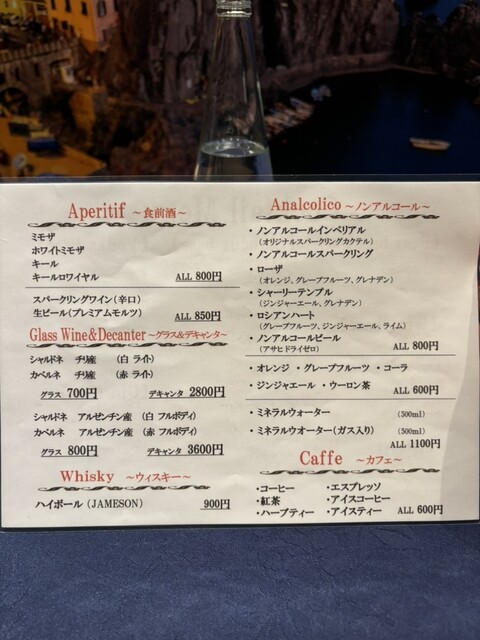 Aperitif ～食前酒～
ミモザ
ホワイトミモザ
キール
キールロワイヤル ALL 800円
スパークリングワイン（辛口）
生ビール（プレミアムモルツ） ALL 850円
Glass Wine&Decanter～グラス&デキャンタ～
シャルドネ チリ産 （白 ライト）
カベルネ チリ産 （赤 ライト）
グラス 700円 デキャンタ 2800円
シャルドネ アルゼンチン産 （白 フルボディ）
カベルネ アルゼンチン産 （赤 フルボディ）
グラス 800円 デキャンタ 3600円
Whisky ～ウィスキー～
ハイボール（JAMESON） 900円
Analcolico ～ノンアルコール～
・ノンアルコールインペリアル
（オリジナルスパークリングカクテル）
・ノンアルコールスパークリング
・ローザ
（オレンジ、グレープフルーツ、グレナデン）
・シャーリーテンプル
（ジンジャーエール、グレナデン）
・ロシアンハート
（グレープフルーツ、ジンジャーエール、ライム）
・ノンアルコールビール
（アサヒドライゼロ） ALL 800円
・オレンジ ・グレープフルーツ ・コーラ
・ジンジャエール ・ウーロン茶 ALL 600円
・ミネラルウォーター （500ml）
・ミネラルウオーター（ガス入り） （500ml）
ALL 1100円
Caffe ～カフェ～
・コーヒー ・エスプレッソ
・紅茶 ・アイスコーヒー
・ハーブティー ・アイスティー ALL 600円